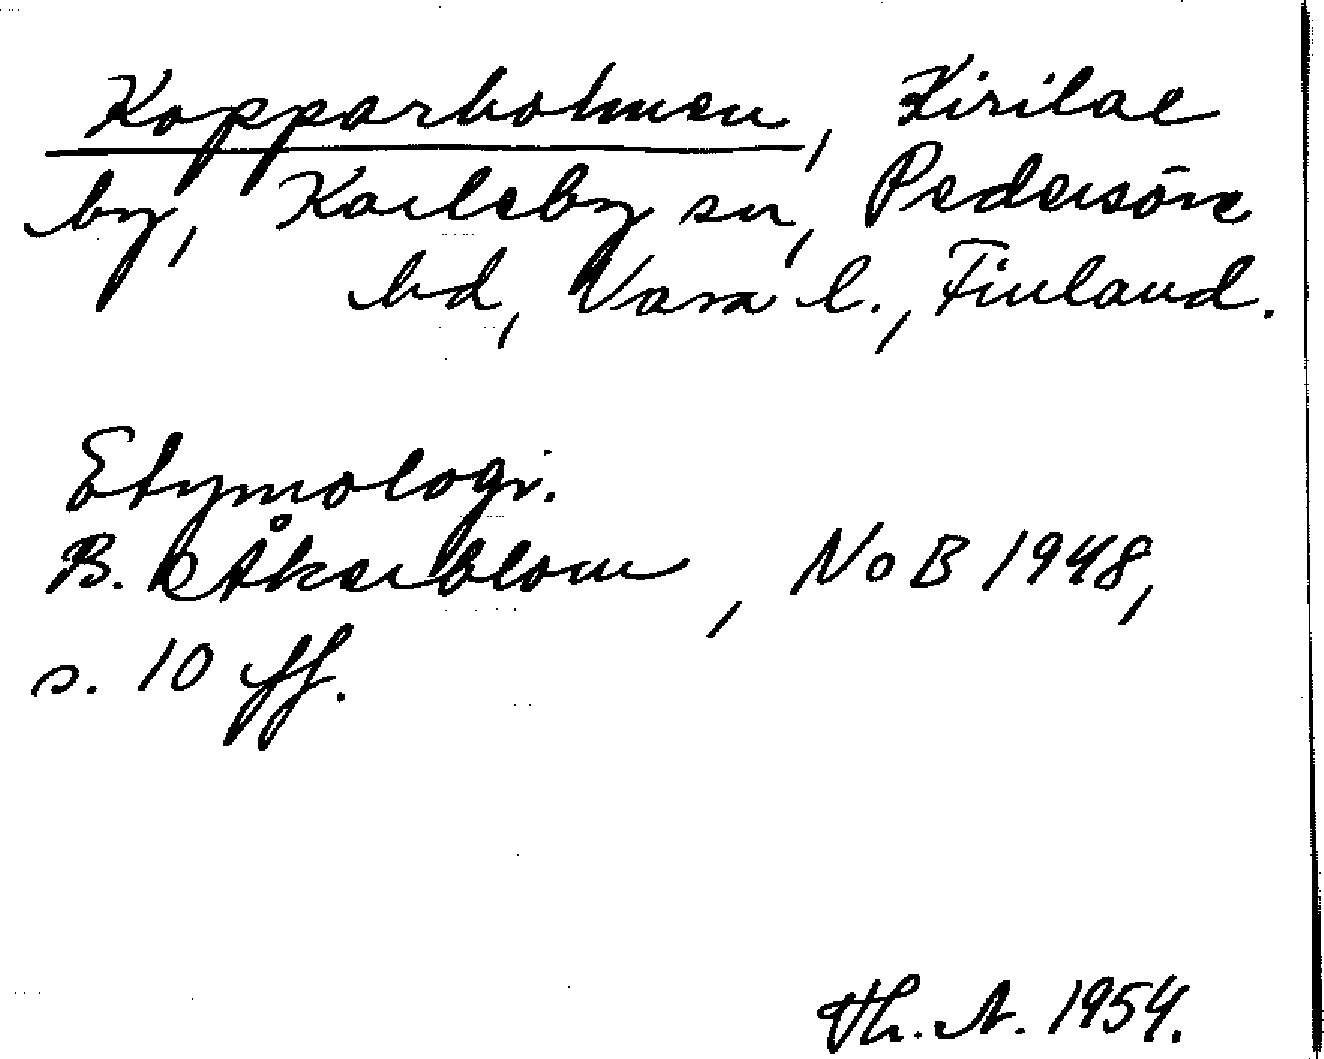 Kopparholmen, Kirilae
by, Karleby sn, Pedersöre
bd, Vasa l., Finland.
Etymologi.
B. Åkerblom, NoB 1948,
s. 10 ff.
Th. A. 1954.